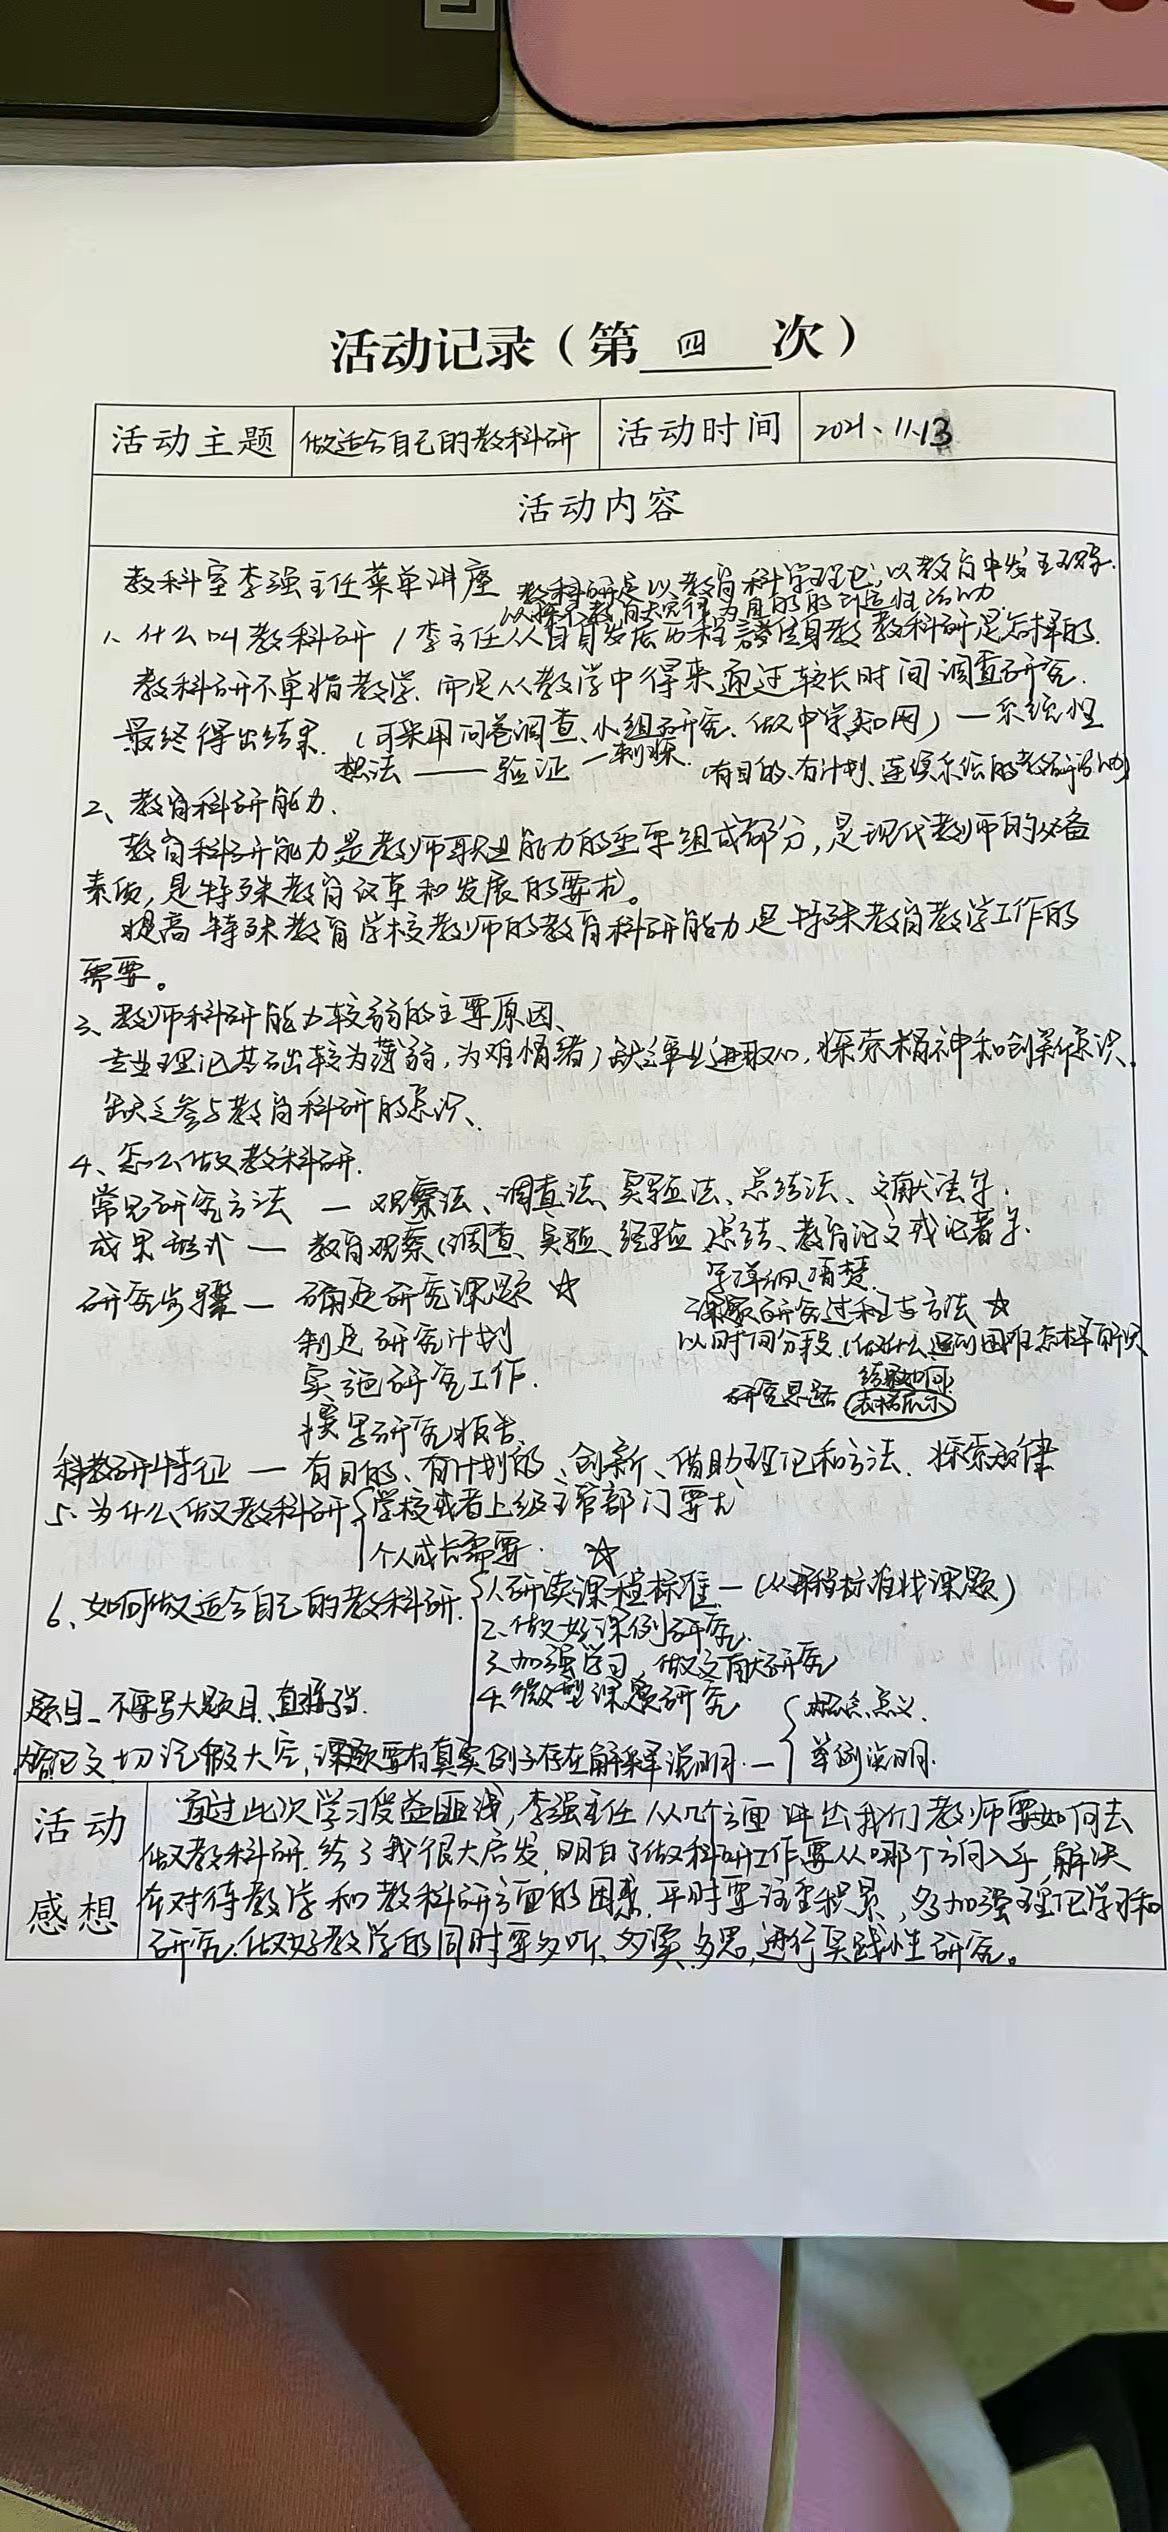 活动记录（第四次）
活动主题 做适合自己的教科研 活动时间 2021.11.13
活动内容
教科室李强主任菜单讲座
教科研是以教育科学理论,以教育中发生现象.
为目的的创造性活动
1、什么叫教科研(李主任从自身发展历程 教科研是怎样的.
教科研不单指教学.而是从教学中得来通过较长时间调查研究.
最终得出结果.(可采用问卷调查、小组研究、做中学和网)—系统性
想法——验证—
(有目的、有计划、连续系统的教研活动)
2、教育科研能力.
教育科研能力是教师职业能力的重要组成部分,是现代教师的必备
素质,是特殊教育改革和发展的要求。
提高特殊教育学校教师的教育科研能力是特殊教育教学工作的
需要。
3、教师科研能力较弱的主要原因、
专业理论基础较为薄弱,为难情绪,缺乏事业进取心,探索精神和创新意识.
缺乏参与教育科研的意识、
4、怎么做教科研.
常见研究方法—观察法、调查法、实验法、总结法、文献法等.
成果形式—教育观察(调查、实验、经验、总结、教育论文或论著等.
写详细,清楚.
研究步骤—确定研究课题☆
课题研究过程与方法☆
制定研究计划
以时间分段.(做什么,遇到困难怎样解决
实施研究工作.
结果如何
研究思路 表格展示
撰写研究报告.
科教研特征—有目的、有计划的、创新、借助理论和方法.探索规律
5、为什么做教科研{学校或者上级主管部门要求
个人成长需要. ☆
6、如何做适合自己的教科研.{1.研读课程标准—(从课程标准找课题)
2、做好课例研究.
3.加强学习,做文献研究
4.微型课题研究
题目—不要写大题目、
{概念、意义.
论文切记假大空,课题要有真实例子存在解释说明.—
举例说明.
活动感想
通过此次学习受益匪浅,李强主任从几个方面讲出我们教师要如何去
做教科研.给了我很大启发,明白了做科研工作要从哪个方向入手,解决
在对待教学和教科研方面的困惑.平时要注重积累,多加强理论学习和
研究.做好教学的同时要多听、多读、多思,进行实践性研究。